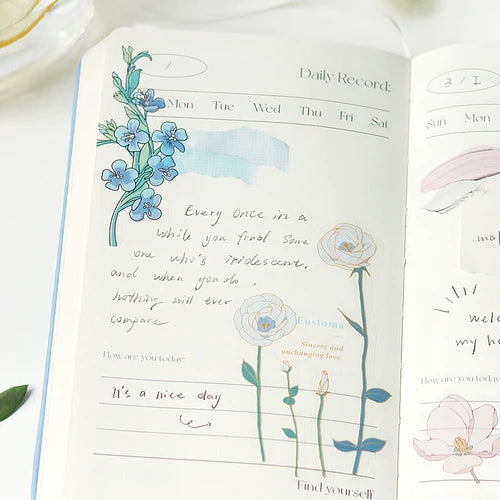 Daily Record:
Mon Tue Wed Thu Fri Sat
Every once in a
while you find some
one who's iridescent,
and when you do,
nothing will ever
compare
Eustoma
Sincere and
unchanging love.
How are you today:
It's a nice day
Find yourself
3 / I
Sun Mon
welc
my he
How are you today: